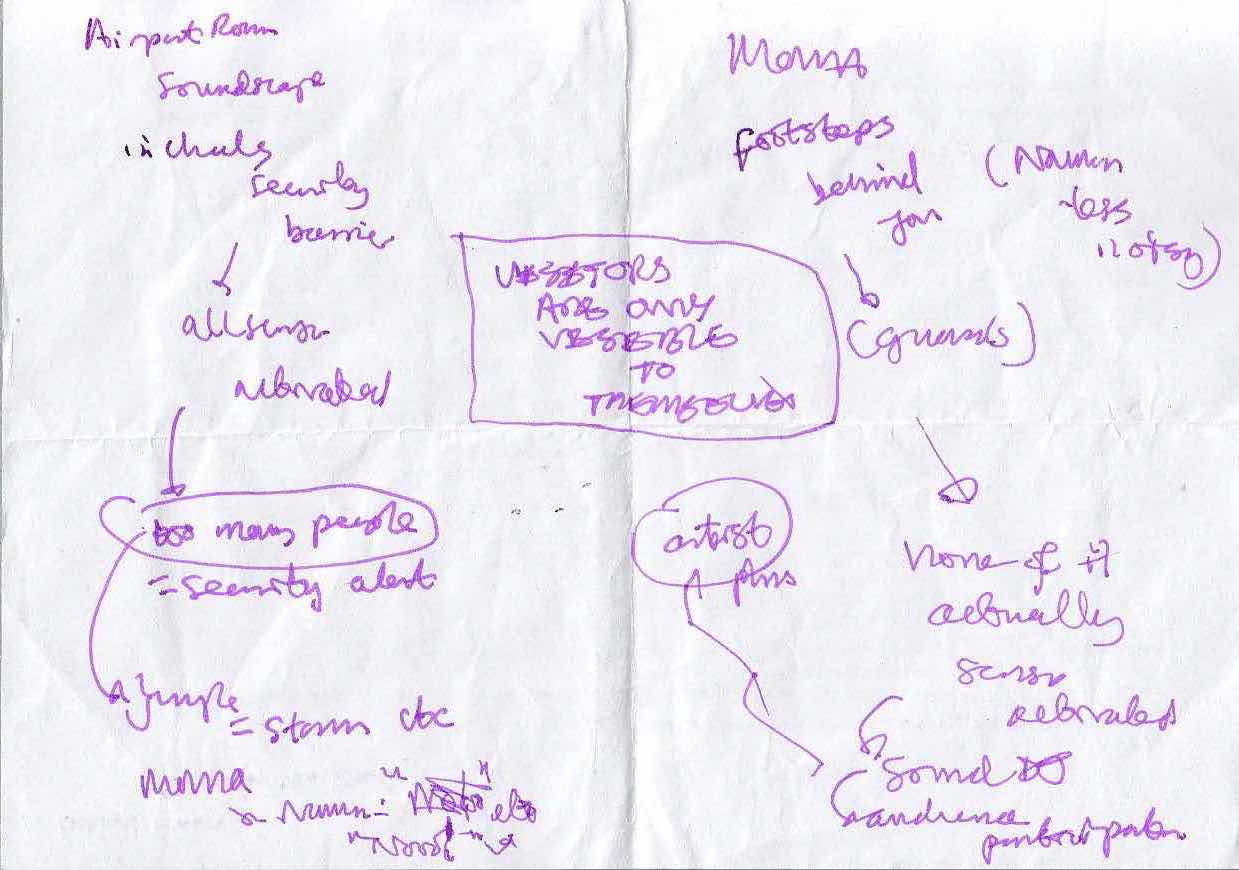 Airport Room
Soundscape
includes
security
barrier
all sensor
activated
too many people
= security alert
jungle
= storm etc
moma
VISITORS
ARE ONLY
VISIBLE
TO
THEMSELVES
MOMA
footsteps
behind
you
(Nauman
less
noisy)
(guards)
artist
plus
none of it
actually
sensor
activated
Sound
audience
participation